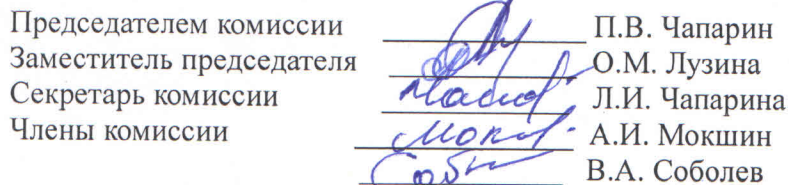 Председателем комиссии П.В. Чапарин
Заместитель председателя О.М. Лузина
Секретарь комиссии Л.И. Чапарина
Члены комиссии А.И. Мокшин
В.А. Соболев